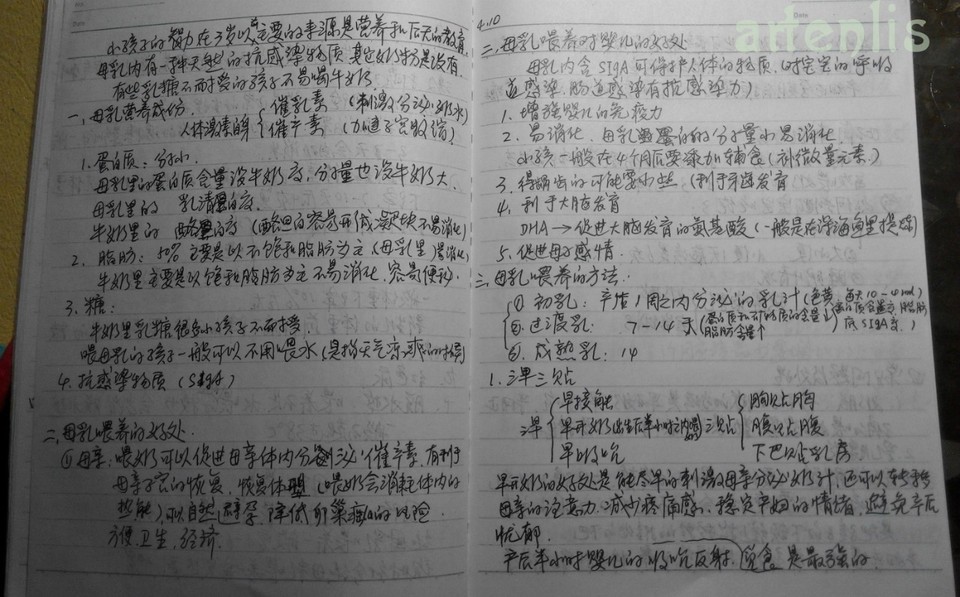 小孩子的智力在3岁以主要的来源是营养和后天的教育
母乳内有一种天然的抗感染物质 其它奶粉是没有
有些乳糖不耐受的孩子不易喝牛奶
一、母乳营养成份
人体激素的 { 催乳素 (刺激分泌奶水)
催产素 (加速子宫收缩)
1. 蛋白质: 分小
母乳里的蛋白质含量没牛奶高、分子量也没牛奶大
母乳里的 乳清蛋白高
牛奶里的 酪蛋白高 (酪蛋白容易形成凝块不易消化)
2. 脂肪: 主要是以不饱和脂肪为主 (母乳里易消化)
牛奶里主要是以饱和脂肪为主不易消化 容易便秘
3. 糖:
牛奶里乳糖很多小孩子不耐受
喂母乳的孩子一般可以不用喂水 (是指天气凉爽的时候)
4. 抗感染物质 (SIgA)
二、母乳喂养的好处
①母亲: 喂奶可以促进母亲体内分泌催产素 有利于
母亲子宫的恢复 恢复体型 (喂奶会消耗体内的
热能), 可以自然避孕 降低卵巢癌的风险
方便 卫生 经济
4.10
三、母乳喂养对婴儿的好处
母乳内含 SIgA 可保护人体的物质 (对宝宝的呼吸
道感染、肠道感染有抵感染力)
1. 增强婴儿的免疫力
2. 易消化 母乳蛋白的分子量小易消化
小孩一般在4个月后要添加辅食 (补微量元素)
3. 得龋齿的可能要小些 (利于牙齿发育
4. 利于大脑发育
DHA → 促进大脑发育的氨基酸 (一般是在深海鱼里提炼)
5. 促进母子感情
三、母乳喂养的方法
① 初乳: 产后1周之内分泌的乳汁
② 过渡乳: 7-14天
③ 成熟乳: 14
1. 三早三贴
三早 { 早接触
早开奶 (出生后半小时之内)
早吸吮
三贴 { 胸贴胸
腹贴腹
下巴贴乳房
早开奶的好处是能尽早的刺激母亲分泌奶汁 还可以转移
母亲的注意力 减少疼痛感、稳定产妇的情绪, 避免产后
忧郁
产后半小时婴儿的吸吮反射、觅食 是最强的
artenlis